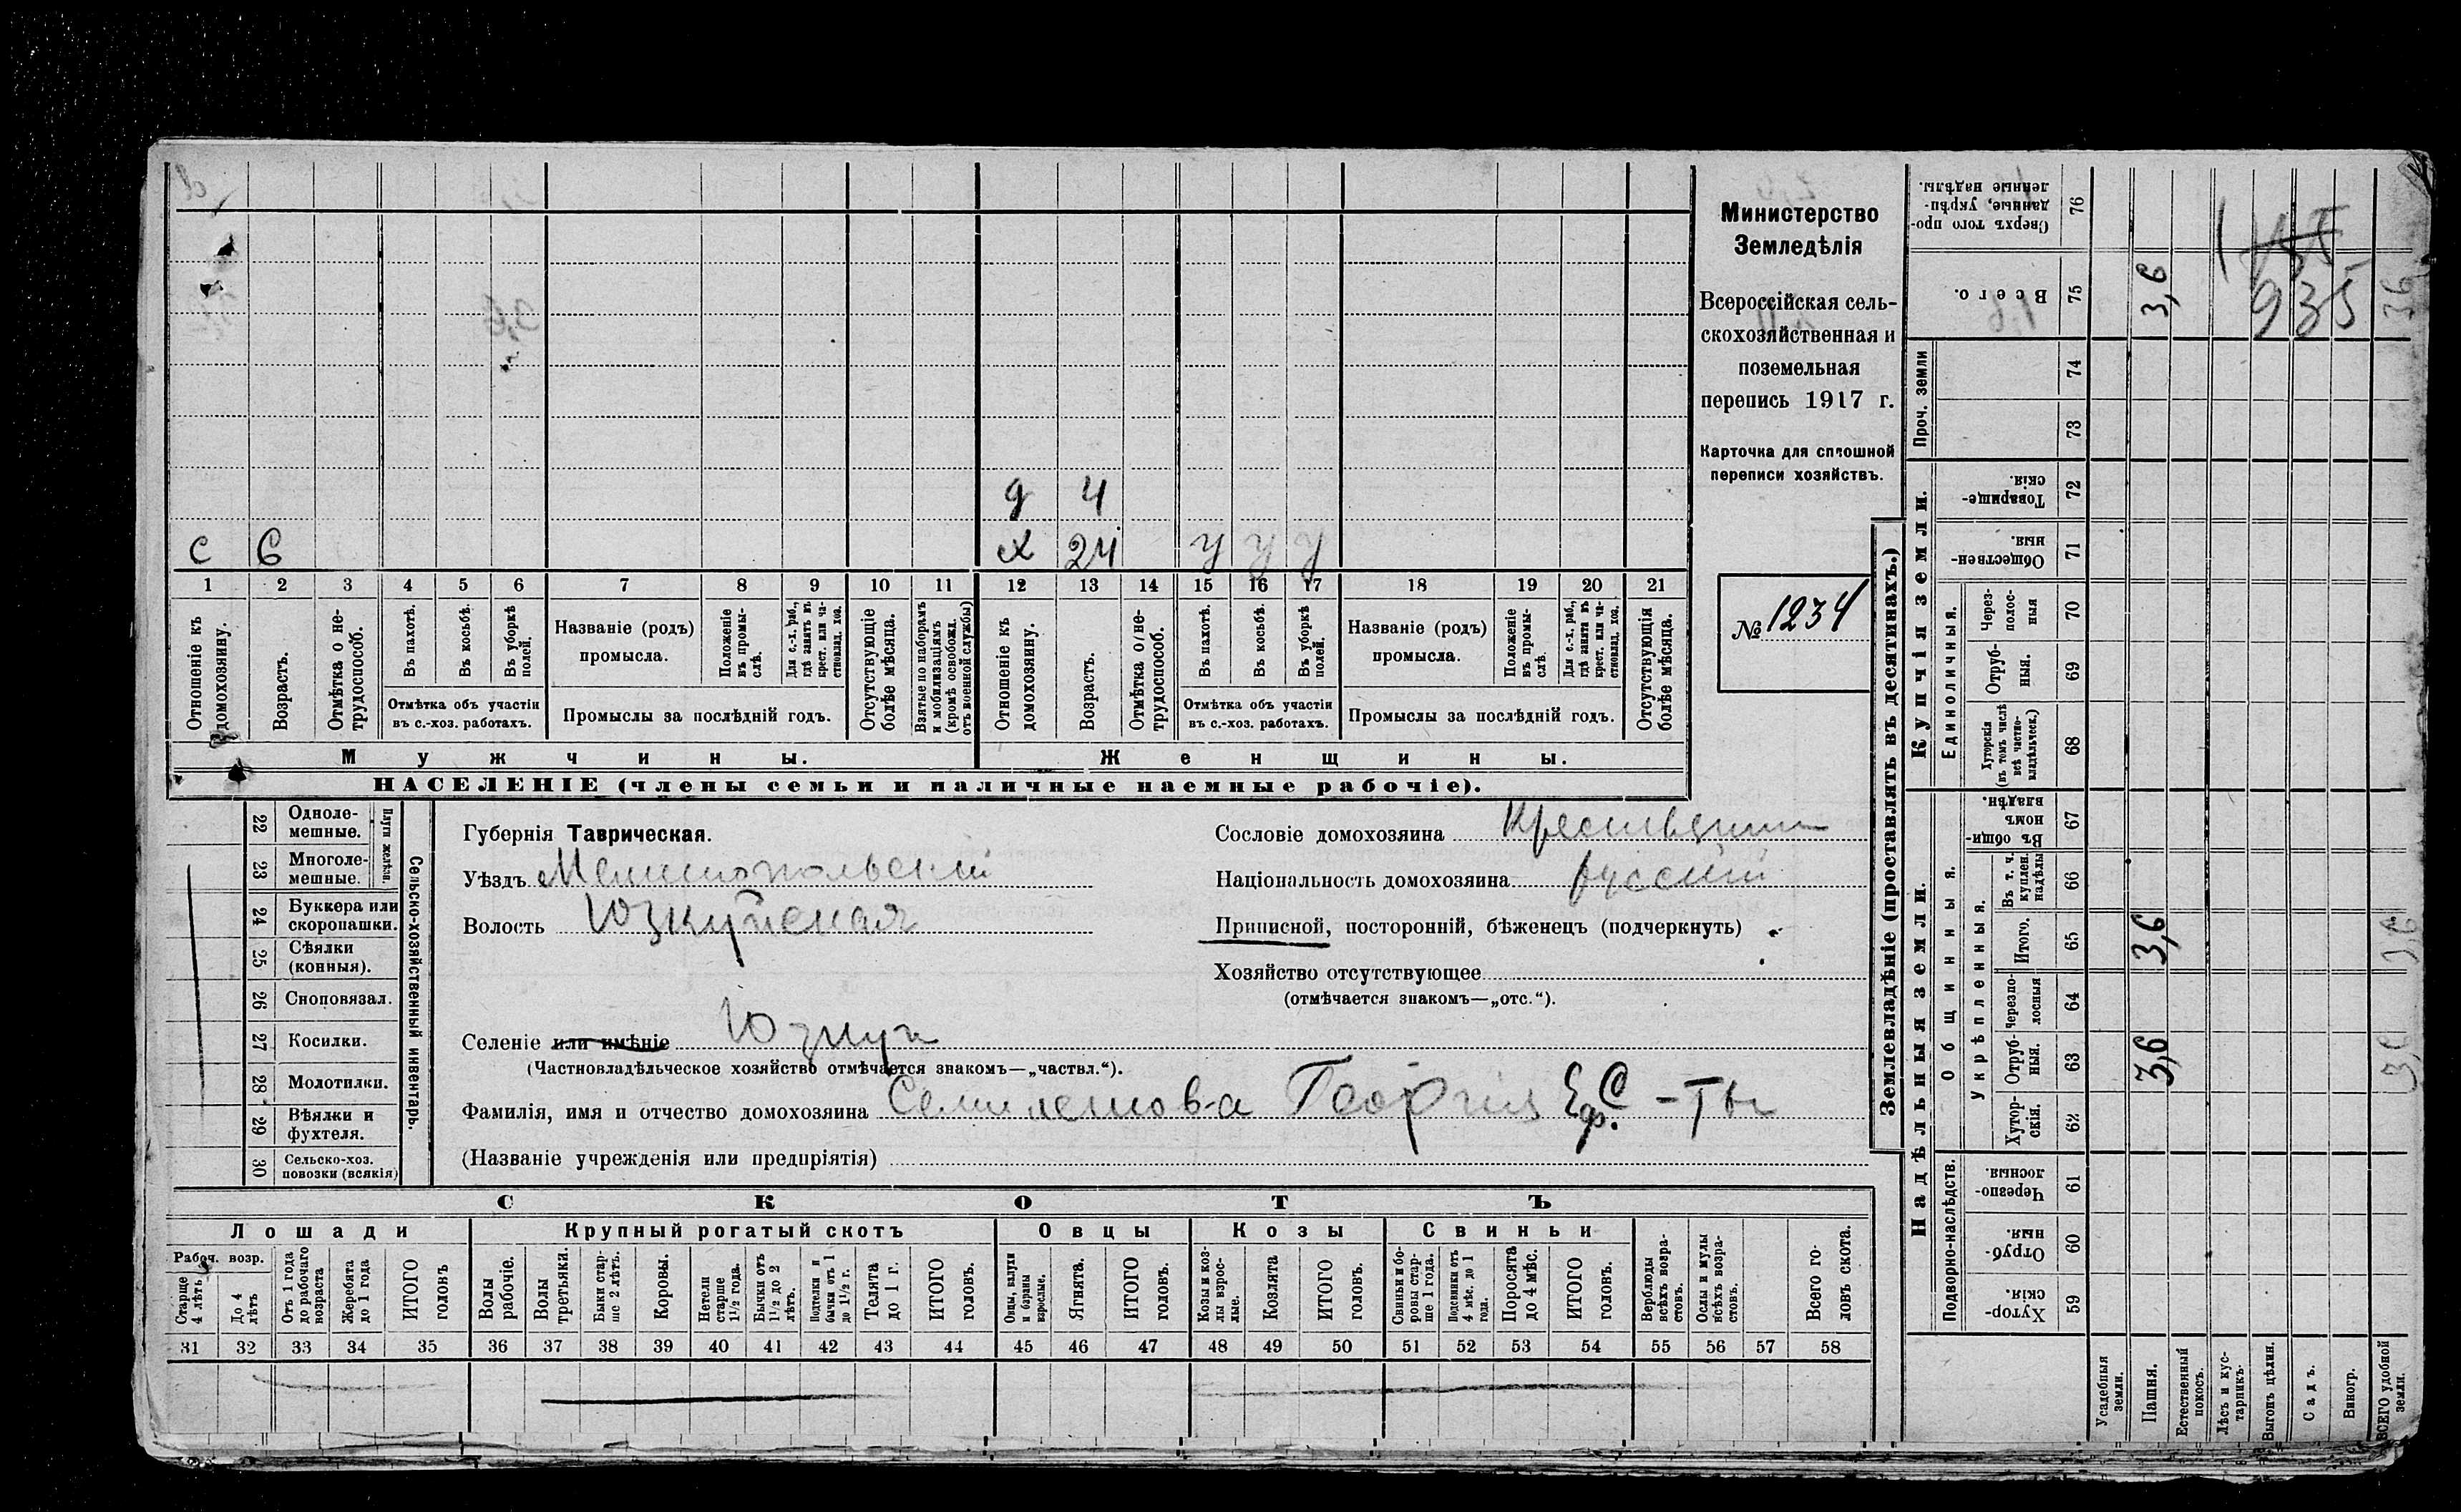 д 4
с 6 х 24 у у у
1 2 3 4 5 6 7 8 9 10 11 12 13 14 15 16 17 18 19 20 21
Отношеніе къ домохозяину.
Возрастъ.
Отмѣтка о не-
трудоспособ.
Въ пахотѣ.
Въ косьбѣ.
Въ уборкѣ
полей.
Отмѣтка объ участіи
въ с.-хоз. работахъ.
Названіе (родъ)
промысла.
Положеніе
въ промы-
слѣ.
Для с.-х. раб.,
гдѣ занятъ въ
крест. или ча-
стновлад. хоз.
Промыслы за послѣдній годъ.
Отсутствующіе
болѣе мѣсяца.
Взятые по наборамъ
и мобилизаціямъ
(кромѣ освобожд.
отъ военной службы)
Отношеніе къ
домохозяину.
Возрастъ.
Отмѣтка о не-
трудоспособ.
Въ пахотѣ.
Въ косьбѣ.
Въ уборкѣ
полей.
Отмѣтка объ участіи
въ с.-хоз. работахъ.
Названіе (родъ)
промысла.
Положеніе
въ промы-
слѣ.
Для с.-х. раб.,
гдѣ занята въ
крест. или ча-
стновлад. хоз.
Промыслы за послѣдній годъ.
Отсутствующія
болѣе мѣсяца.
Мужчины. Женщины.
НАСЕЛЕНІЕ (члены семьи и наличные наемные рабочіе).
Министерство
Земледѣлія
Всероссійская сель-
скохозяйственная и
поземельная
перепись 1917 г.
Карточка для сплошной
переписи хозяйствъ.
№ 1234
22 Одноле-
мешные.
23 Многоле-
мешные.
Плуги желѣзн.
24 Буккера или
скоропашки.
25 Сѣялки
(конныя).
26 Сноповязал.
27 Косилки.
28 Молотилки.
29 Вѣялки и
фухтеля.
30 Сельско-хоз.
повозки (всякія)
Сельско-хозяйственный инвентарь.
Губернія Таврическая.
Уѣздъ Мелитопольскій
Волость Юзкуйская
Селеніе или имѣніе Юзкуи
(Частновладѣльческое хозяйство отмѣчается знакомъ—„частвл.“).
Фамилія, имя и отчество домохозяина Семилетова Георгія Еф. С-ты
(Названіе учрежденія или предпріятія)
Сословіе домохозяина Крестьянин
Національность домохозяина русскій
Приписной, посторонній, бѣженецъ (подчеркнуть)
Хозяйство отсутствующее
(отмѣчается знакомъ—„отс.“).
СКОТЪ
Лошади Крупный рогатый скотъ Овцы Козы Свиньи
Рабоч. возр.
Старше
4 лѣтъ
До 4
лѣтъ
Отъ 1 года
до рабочаго
возраста
Жеребята
до 1 года
ИТОГО
головъ
Волы
рабочіе.
Волы
третьяки.
Быки стар-
ше 2 лѣтъ.
Коровы.
Нетели
старше
1½ года.
Бычки отъ
1½ до 2
лѣтъ.
Подтелки и
бычки отъ 1
до 1½ г.
Телята
до 1 г.
ИТОГО
головъ.
Овцы, валухи
и бараны
взрослые.
Ягнята.
ИТОГО
головъ.
Козы и коз-
лы взрос-
лые.
Козлята
ИТОГО
головъ.
Свиньи и бо-
ровы стар-
ше 1 года.
Подсвинки отъ
4 мѣс. до 1
года.
Поросята
до 4 мѣс.
ИТОГО
головъ.
Верблюды
всѣхъ возра-
стовъ.
Ослы и мулы
всѣхъ возра-
стовъ.
Всего го-
ловъ скота.
31 32 33 34 35 36 37 38 39 40 41 42 43 44 45 46 47 48 49 50 51 52 53 54 55 56 57 58
Землевладѣніе (проставлять въ десятинахъ.)
Надѣльныя земли. Купчія земли. Проч. земли
Подворно-наслѣдств.
Общинныя.
Укрѣпленныя.
Единоличныя.
Хутор-
скія. 59
Отруб-
ныя. 60
Черезпо-
лосныя. 61
Хутор-
скія. 62
Отруб-
ныя. 63
Черезпо-
лосныя 64
Итого. 65
Въ т. ч.
куплен.
надѣлы 66
Въ общин-
номъ
владѣн. 67
Хуторскія
(въ томъ числѣ
всѣ частно-
владѣльческ.) 68
Отруб-
ныя. 69
Через-
полос-
ныя 70
Обществен-
ныя. 71
Товарище-
скія. 72
73
74
Всего. 75
Сверхъ того про-
данные, укрѣп-
ленные надѣлы. 76
Усадебныя
земли.
Пашня. 3,6 3,6 3,6
Естественный
покосъ.
Лѣсъ и кус-
тарникъ.
Выгонъ цѣлин.
Садъ.
Виногр.
ВСЕГО удобной
земли. 3,6 3,6 36
935